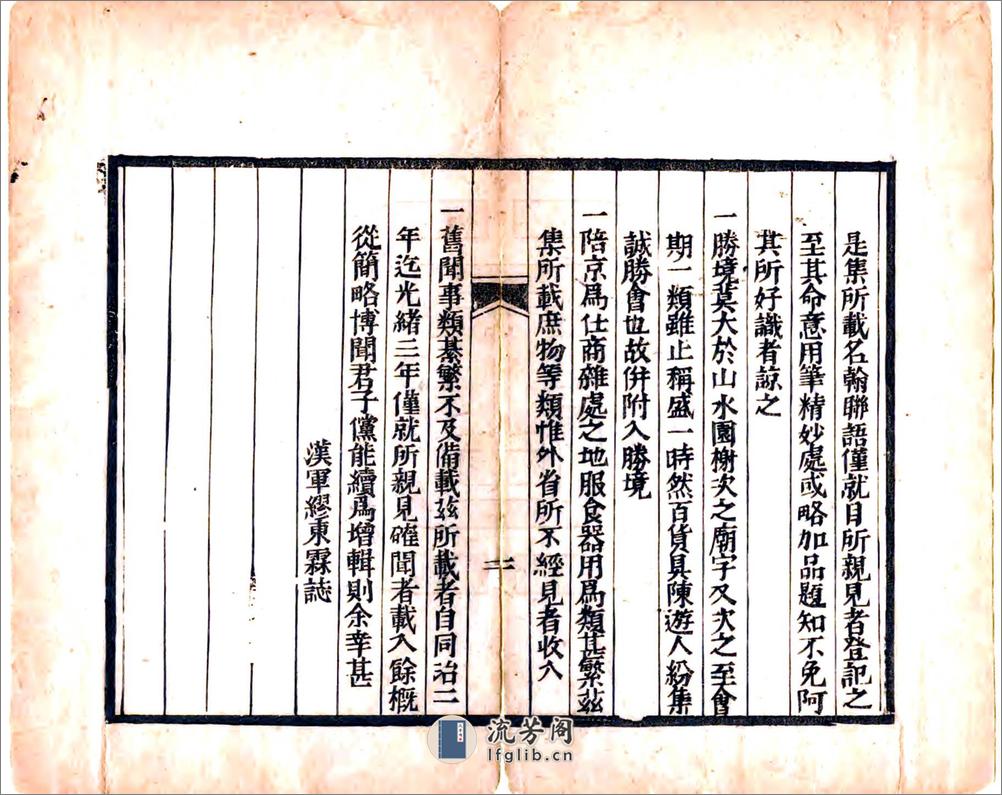 是集所載名翰聯語僅就目所親見者登記之
至其命意用筆精妙處或略加品題知不免阿
其所好識者諒之
一勝境莫大於山水園榭次之廟宇又次之至會
期一類雖止稱盛一時然百貨具陳遊人紛集
誠勝會也故併附入勝境
一陪京爲仕商雜處之地服食器用爲類甚繁玆
集所載庶物等類惟外省所不經見者收入
二
一舊聞事類綦繁不及備載玆所載者自同治二
年迄光緒三年僅就所親見確聞者載入餘概
從簡略博聞君子儻能續爲增輯則余幸甚
漢軍繆東霖誌
流芳阁
lfglib.cn